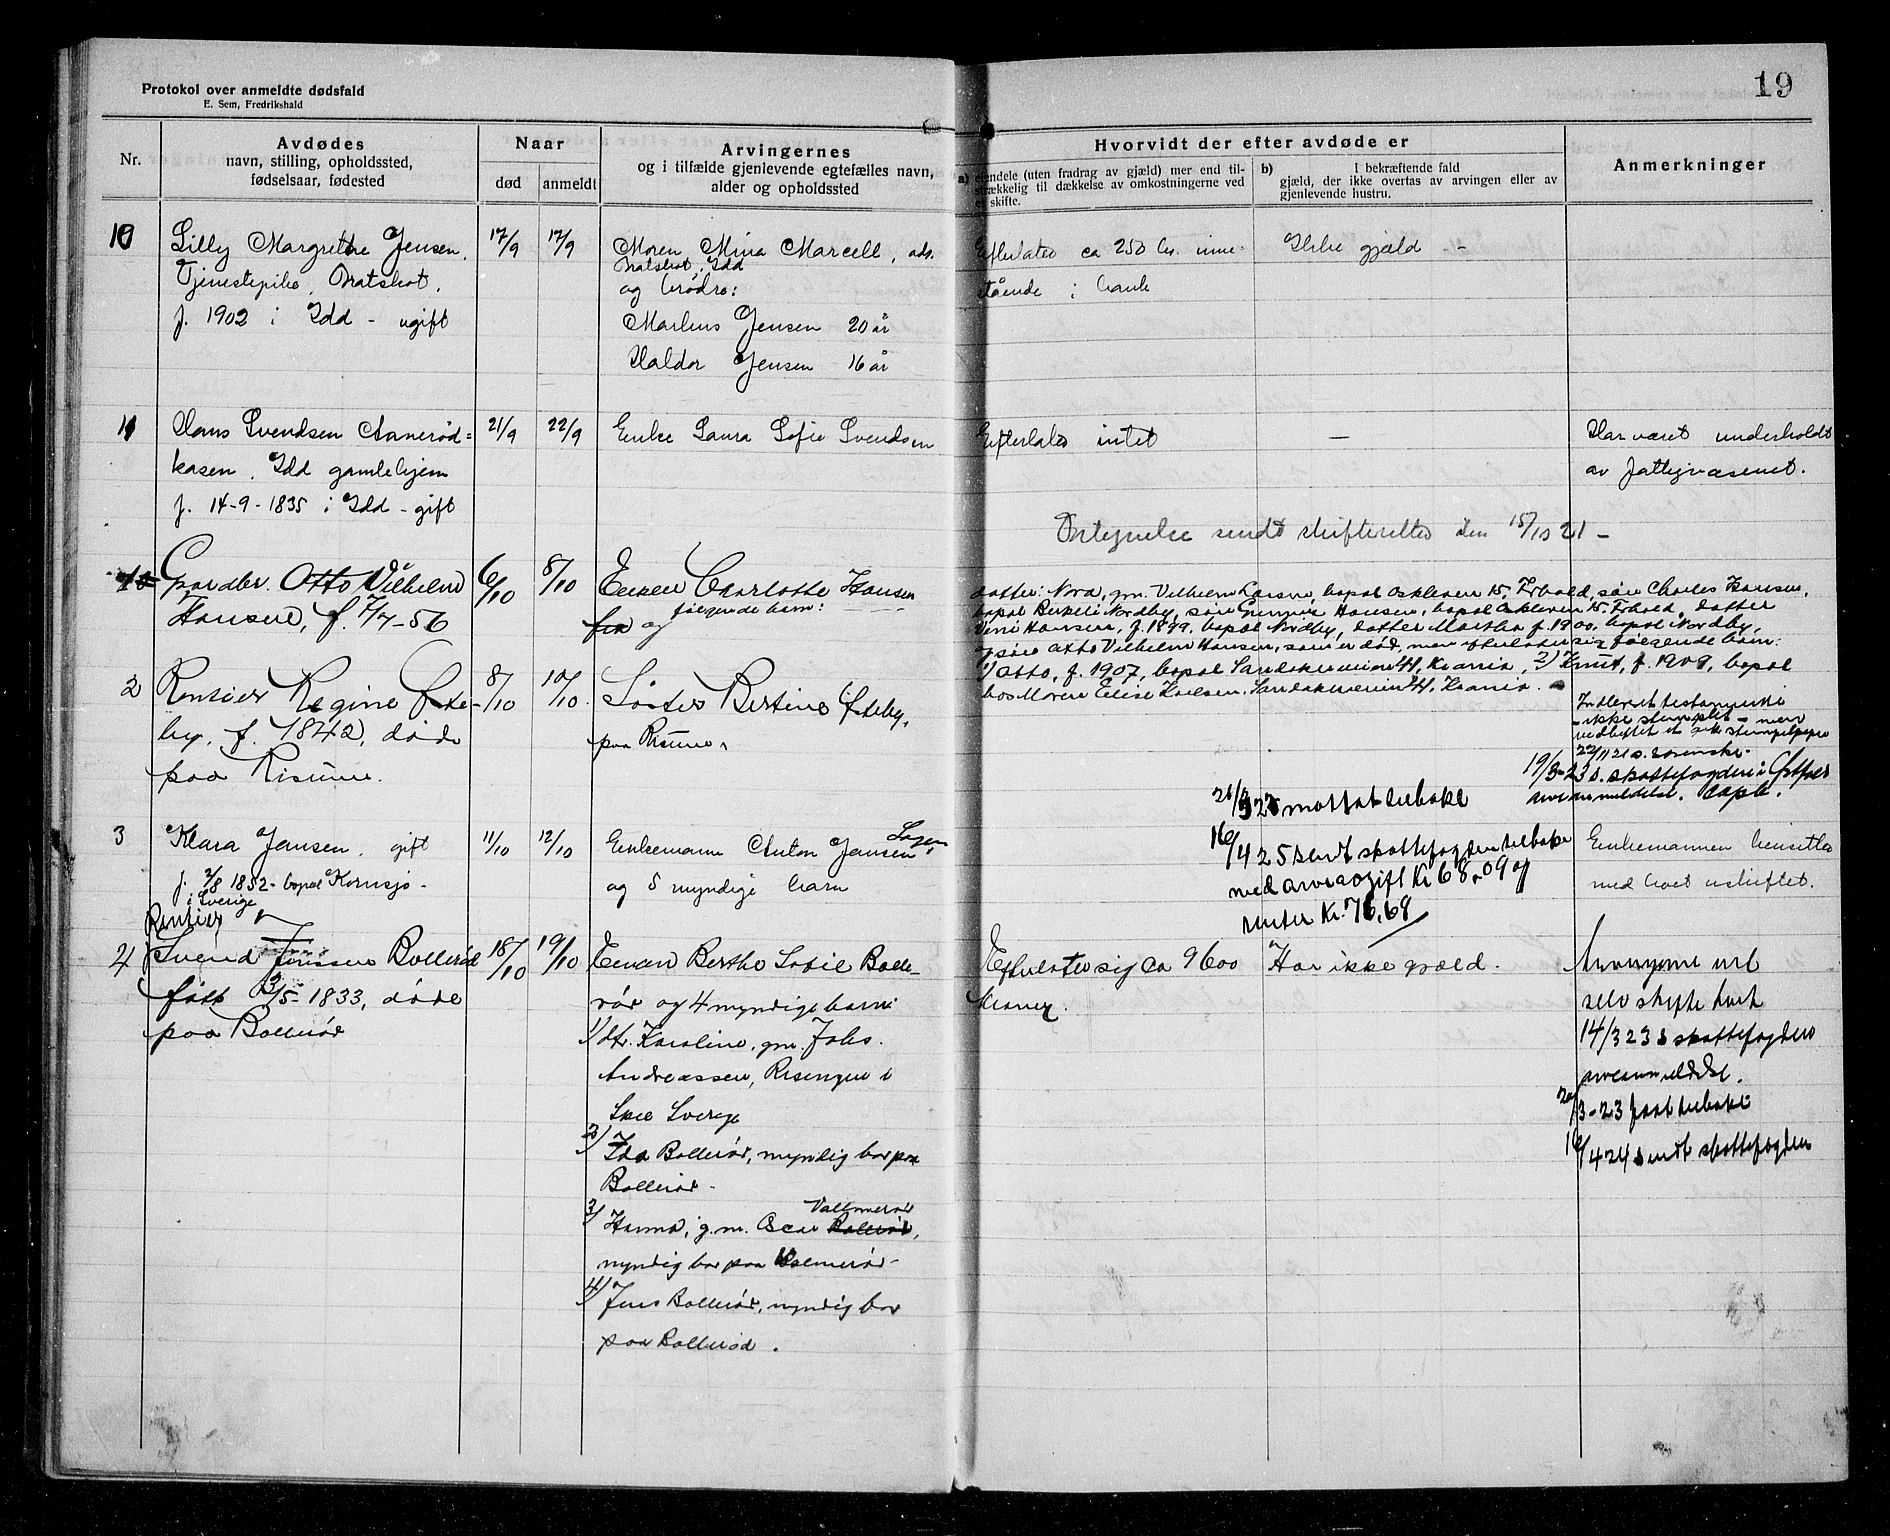 19
Protokol over anmeldte dødsfald
E. Sem, Fredrikshald
Nr.
Avdødes
navn, stilling, opholdssted,
fødselsaar, fødested
Naar
død
anmeldt
Arvingernes
og i tilfælde gjenlevende egtefælles navn,
alder og opholdssted
Hvorvidt der efter avdøde er
a) eiendele (uten fradrag av gjæld) mer end til-
strækkelig til dækkelse av omkostningerne ved
et skifte.
b) I bekræftende fald
gjæld, der ikke overtas av arvingen eller av
gjenlevende hustru.
Anmerkninger
10
Lilly Margrethe Jensen,
Tjenestepike, Bratskot,
f. 1902 i Idd - ugift
17/9
17/9
Moren Mina Marcell, adr.
Bratskot, Idd
og brødre:
Marlius Jensen 20 år
Haldor Jensen 16 år
Efterlater ca 250 kr. inne-
stående i bank
Ikke gjæld -
11
Hans Svendsen Aanerød-
kasen, Idd gamlehjem
f. 14-9-1835 i Idd - gift
21/9
22/9
Enke Laura Sofie Svendsen
Efterlater intet
-
Har været underholdt
av fattigvæsenet.
Fortegnelse sendt skifteretten den 15/10 21 -
1
Gaardbr. Otto Vilhelm
Hansen, f. 7/7-56
6/10
8/10
Enken Charlotte Hansen
og følgende barn:
datter: Nora, gm. Vilhelm Larsen, bopæl Oskleven 15, Frhald, søn Charles Hansen,
bopæl Berkeli Nordby, søn Gunnar Hansen, bopæl Oskleven 15 Frhald, datter
Hansen, f. 1899, bopæl Nordby, datter Martha f. 1900, bopæl Nordby,
og søn Otto Vilhelm Hansen, som er død, men efterlater sig følgende børn:
1) Otto, f. 1907, bopæl Sandakerveien 41, Krania, 2) Knut, f. 1909, bopæl
hos Moren Elise Karlsen, Sandakerveien 41, Krania.
2
Rentier Regine Øste-
by, f. 1842, døde
paa Risum.
8/10
10/10
Søster Bertine Østeby,
paa Risum.
Indleveret testamente
- ikke stemplet - men
vedheftet et ark stempelpapir
22/11 21 s. sorenskr.
19/3-23 s. skattefogden i Østfold
arveanmeldelse. Capt.
21/3 23 mottat tilbake
16/4 25 sendt skattefogden tilbake
med arveavgift Kr 68,09 og
renter Kr. 76,68
3
Klara Jansen, gift
f. 2/8 1852 - bopæl Kornsjø -
i Sverige
11/10
12/10
Enkemann Anton Jansen
og 5 myndige barn
Enkemannen hensitter
med boet uskiftet.
Rentier
4
Svend Jenssen Bollerød
født 3/5-1833, døde
paa Bollerød
18/10
19/10
Enken Berthe Sofie Bolle-
rød og 4 myndige barn:
1) dtr. Karoline, gm. Johs.
Andreassen, Risingen i
Skee Sverige
2) Ida Bollerød, myndig bor paa
Bollerød -
3) Hanna, g.m. Oscar Bollerød,
Vallmerød
myndig bor paa Holmerød -
4) Jens Bollerød, myndig bor
paa Bollerød.
Efterlater sig ca 9600
Kroner.
Har ikke gjæld.
Arvingerne vil
selv skifte boet
14/3 23 s skattefogden
arveanmeldelse.
20/3-23 faat tilbake
16/4 24 sendt skattefogden